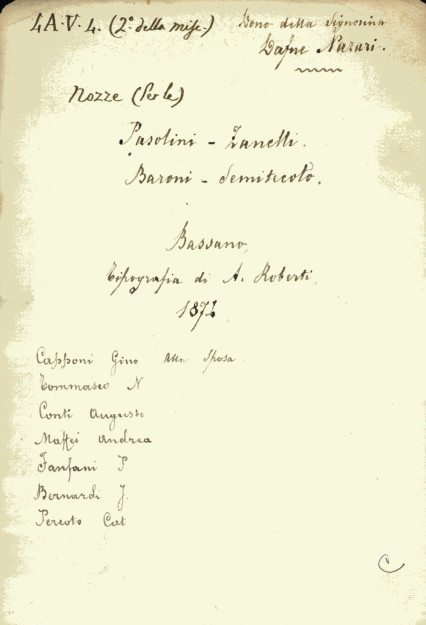 4A.V. 4. (2º della misc.)
Dono della Signorina
Dafne Nazari.
Nozze (Per le)
Pasolini - Zanelli.
Baroni - Semitecolo.
Bassano,
Tipografia di A. Roberti
187
Capponi Gino Alla Sposa
Tommaseo N
Conti Augusto
Maffei Andrea
Fanfani P
Bernardi J.
Percoto Cat
C